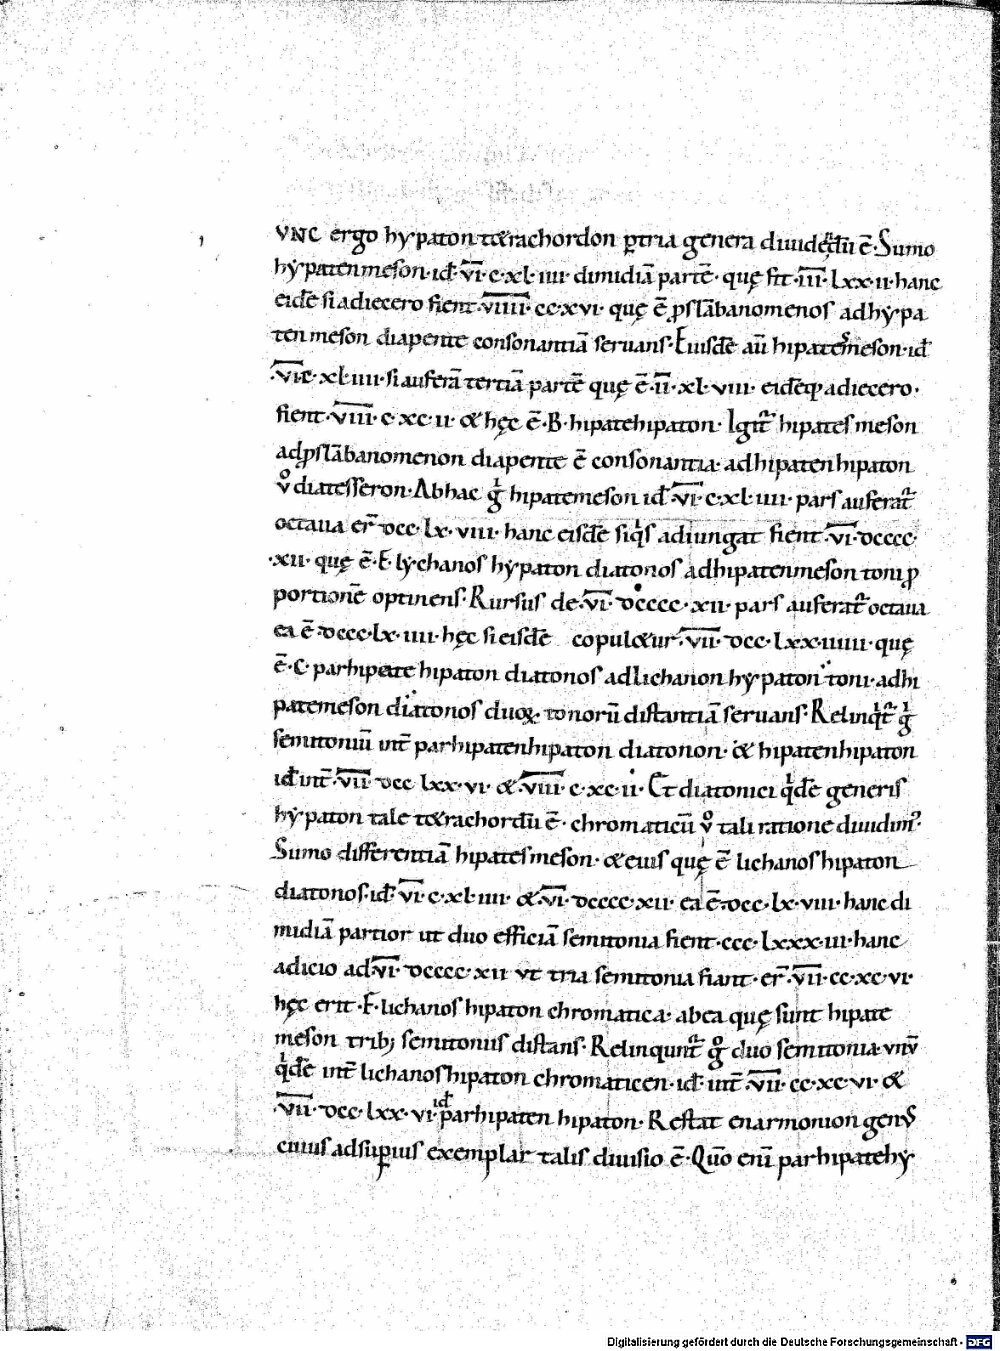 VNC ergo hypaton tetrachordon ꝑ tria genera diuidẽdũ ẽ· Sumo
hypatenmeson· id̃· v̅i̅· c· xl· iiii· dimidiã partẽ· quę fit· i̅i̅i̅· lxx· ii· hanc
eidẽ si adiecero fient· v̅i̅i̅i̅i̅· cc· xvi· quę ẽ ꝓslãbanomenos ad hypa
ten meson diapente consonantiã seruans· Eiusdẽ aũ hipatesmeson· id̃
·v̅i̅· c· xl· iiii· si auferã tertiã partẽ quę ẽ· i̅i̅· xl· viii· eidẽq; adiecero·
fient· v̅i̅i̅i̅· c· xc· ii· & hęc ẽ· B· hipatehipaton· Igit̃ hipates meson
ad ꝓslãbanomenon diapente ẽ consonantia· ad hipatenhipaton
v̊ diatesseron· Ab hac gͥ hipatemeson id̃ v̅i̅· c· xl· iiii· pars auferat̃
octaua er̃ dcc· lx· viii· hanc eisdẽ siqͥs adiungat fient· v̅i̅· dcccc·
·xii· quę ẽ· E· lychanos hypaton diatonos ad hipatenmeson toni ꝓ
portionẽ optinens· Rursus de· v̅i̅· dcccc· xii· pars auferat̃ octaua
ea ẽ· dccc· lx· iiii· hęc si eisdẽ copuletur· v̅i̅i̅· dcc· lxx· iiiiii· quę
ẽ· C· parhipate hipaton diatonos ad lichanon hypaton toni· ad hi
patemeson diatonos duoꝝ tonorũ distantiã seruans· Relinqͥt̃ gͥ
semitoniũ int̃ parhipatenhipaton diatonon· & hipatenhipaton
id̃ int̃· v̅i̅i̅· dcc lxx· vi· & v̅i̅i̅i̅· c· xc· ii· Et diatonici qͥdẽ generis
hypaton tale tetrachordũ ẽ· chromaticũ v̊ tali ratione diuidimꝰ
Sumo differentiã hipatesmeson· & eius quę ẽ lichanos hipaton
diatonos· id̃· v̅i̅· c· xl· iiii· & v̅i̅· dcccc· xii· ea ẽ· dcc· lx· viii· hanc di
midiã partior ut duo efficiã semitonia fient· ccc· lxxx· iii· hanc
adicio ad v̅i̅· dcccc· xii vt tria semitonia fiant· er̃ v̅i̅i̅· cc· xc· vi·
hęc erit· F· lichanos hipaton chromatica· ab ea quę sunt hipate
meson tribꝫ semitoniis distans· Relinqunt̃ g̊ duo semitonia· vnũ
qͥdẽ int̃ lichanos hipaton chromaticen· id̃ int̃ v̅i̅i̅· cc· xc· vi· &
·v̅i̅i̅· dcc· lxx· vi id̃ parhipaten hipaton· Restat enarmonion genꝰ
cuius ad supius exemplar talis diuisio ẽ· Qũo enĩ parhipatehy
Digitalisierung gefördert durch die Deutsche Forschungsgemeinschaft - DFG